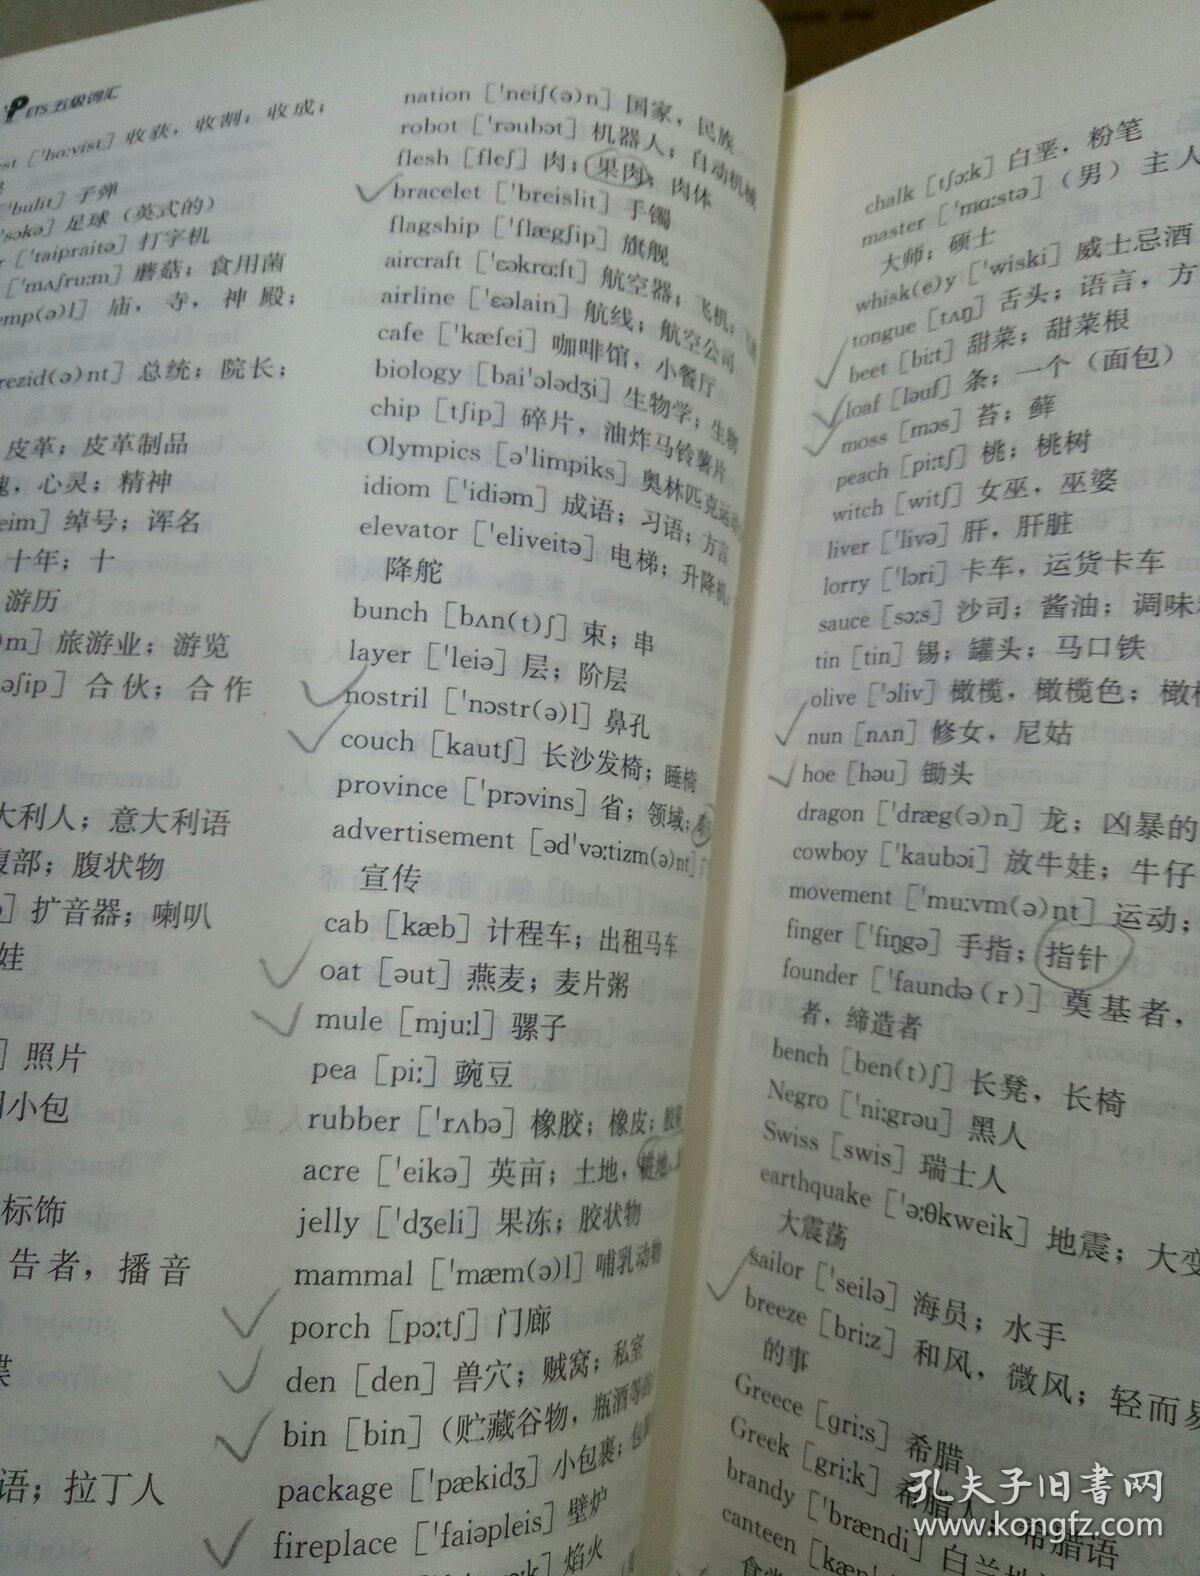 PETS 五级词汇
['hɑ:vist] 收获，收割；收成；
['bulit] 子弹
['sɔkə] 足球（英式的）
['taipraitə] 打字机
['mʌʃru:m] 蘑菇；食用菌
emp(ə)l] 庙，寺，神殿；
rezid(ə)nt] 总统；院长；
皮革；皮革制品
，心灵；精神
eim] 绰号；诨名
十年；十
游历
m] 旅游业；游览
əʃip] 合伙；合作
大利人；意大利语
腹部；腹状物
扩音器；喇叭
娃
] 照片
小包
标饰
告者，播音
语；拉丁人
nation ['neiʃ(ə)n] 国家，民族
robot ['rəubɔt] 机器人；自动机械
flesh [fleʃ] 肉；果肉；肉体
bracelet ['breislit] 手镯
flagship ['flægʃip] 旗舰
aircraft ['ɛəkrɑ:ft] 航空器；飞机；
airline ['ɛəlain] 航线；航空公司
cafe ['kæfei] 咖啡馆，小餐厅
biology [bai'ɔlədʒi] 生物学；生物
chip [tʃip] 碎片，油炸马铃薯片
Olympics [ə'limpiks] 奥林匹克运动
idiom ['idiəm] 成语；习语；方言
elevator ['eliveitə] 电梯；升降机；
降舵
bunch [bʌn(t)ʃ] 束；串
layer ['leiə] 层；阶层
nostril ['nɔstr(ə)l] 鼻孔
couch [kautʃ] 长沙发椅；睡椅
province ['prɔvins] 省；领域；
advertisement [əd'və:tizm(ə)nt]
宣传
cab [kæb] 计程车；出租马车
oat [əut] 燕麦；麦片粥
mule [mju:l] 骡子
pea [pi:] 豌豆
rubber ['rʌbə] 橡胶；橡皮；
acre ['eikə] 英亩；土地，耕地，
jelly ['dʒeli] 果冻；胶状物
mammal ['mæm(ə)l] 哺乳动物
porch [pɔ:tʃ] 门廊
den [den] 兽穴；贼窝；私室
bin [bin]（贮藏谷物，瓶酒等的
package ['pækidʒ] 小包裹；包
fireplace ['faiəpleis] 壁炉
焰火
chalk [tʃɔ:k] 白垩，粉笔
master ['mɑ:stə]（男）主人
大师；硕士
whisk(e)y ['wiski] 威士忌酒
tongue [tʌŋ] 舌头；语言，方
beet [bi:t] 甜菜；甜菜根
loaf [ləuf] 条；一个（面包）
moss [mɔs] 苔；藓
peach [pi:tʃ] 桃；桃树
witch [witʃ] 女巫，巫婆
liver ['livə] 肝，肝脏
lorry ['lɔri] 卡车，运货卡车
sauce [sɔ:s] 沙司；酱油；调味
tin [tin] 锡；罐头；马口铁
olive ['ɔliv] 橄榄，橄榄色；橄榄
nun [nʌn] 修女，尼姑
hoe [həu] 锄头
dragon ['dræg(ə)n] 龙；凶暴的
cowboy ['kaubɔi] 放牛娃；牛仔
movement ['mu:vm(ə)nt] 运动；
finger ['fiŋgə] 手指；指针
founder ['faundə(r)] 奠基者，
者，缔造者
bench [ben(t)ʃ] 长凳，长椅
Negro ['ni:grəu] 黑人
Swiss [swis] 瑞士人
earthquake ['ə:θkweik] 地震；大变
大震荡
sailor ['seilə] 海员；水手
breeze [bri:z] 和风，微风；轻而易
的事
Greece [gri:s] 希腊
Greek [gri:k] 希腊人；希腊语
brandy ['brændi] 白兰地
canteen [kæn
食堂
孔夫子旧书网
www.kongfz.com